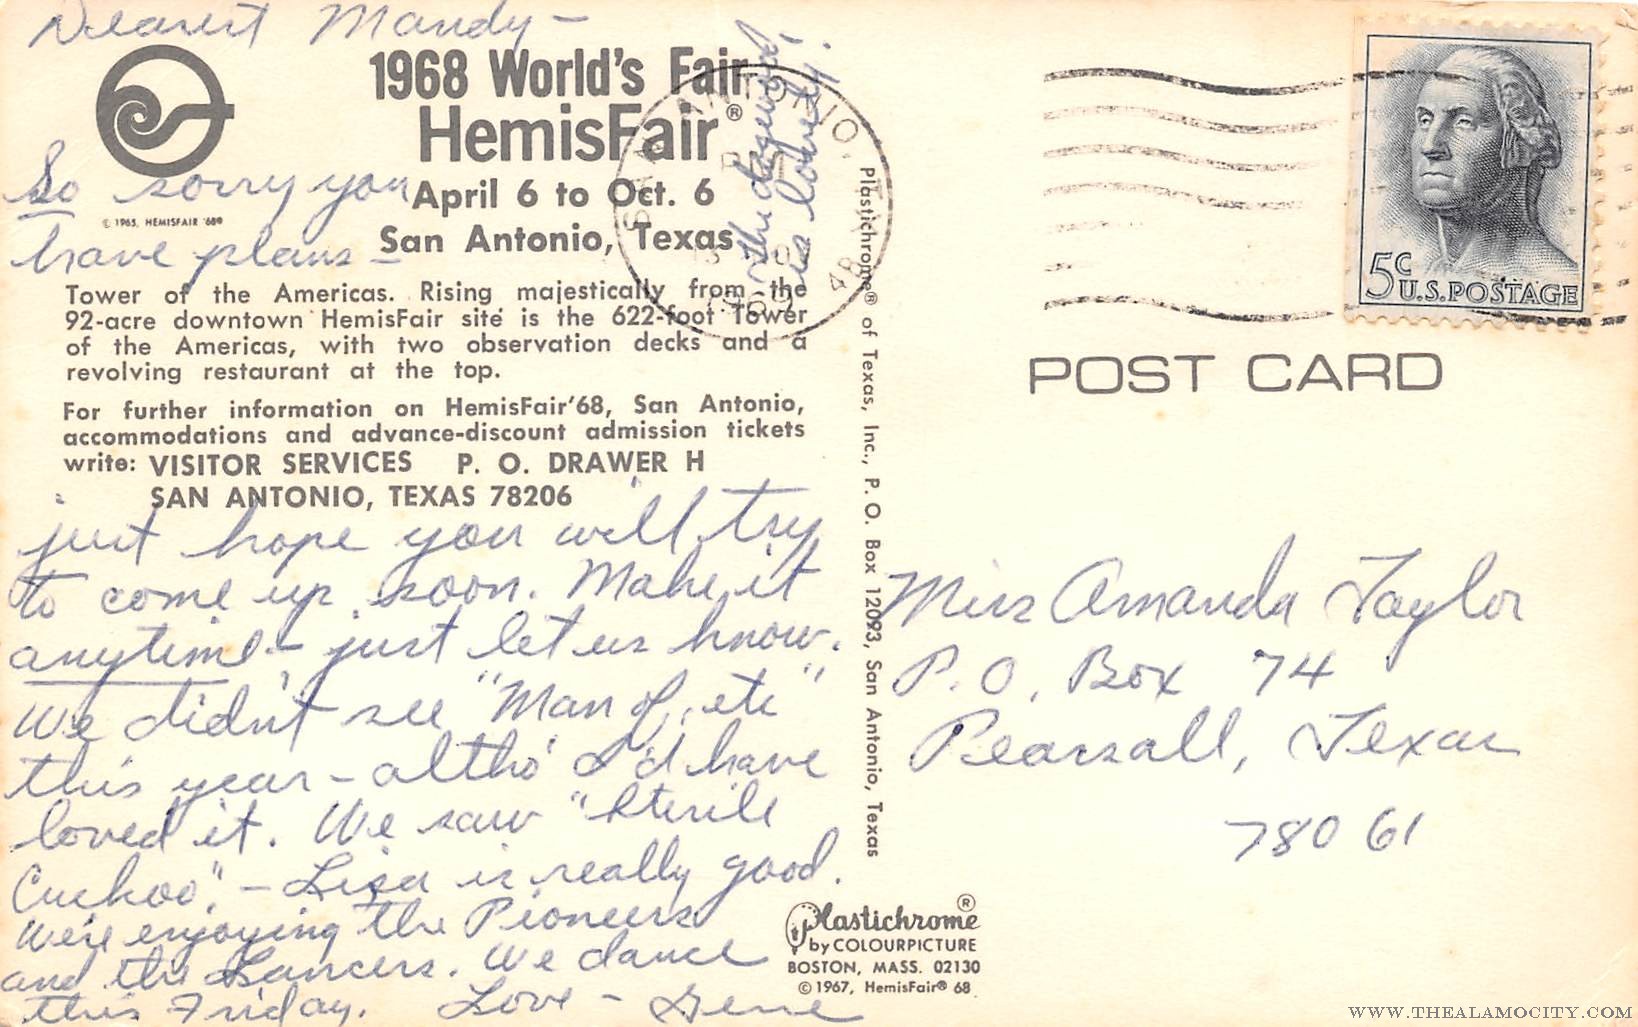 Dearest Mandy –
1968 World's Fair
HemisFair®
So sorry you
April 6 to Oct. 6
© 1965, HEMISFAIR '68®
San Antonio, Texas
have plans –
Tower of the Americas. Rising majestically from the
92-acre downtown HemisFair site is the 622-foot Tower
of the Americas, with two observation decks and a
revolving restaurant at the top.
For further information on HemisFair'68, San Antonio,
accommodations and advance-discount admission tickets
write: VISITOR SERVICES P. O. DRAWER H
SAN ANTONIO, TEXAS 78206
just hope you will try
to come up soon. Make it
anytime – just let us know.
We didn't see "Man of, etc"
this year – altho' I'd have
loved it. We saw "Sterile
Cuckoo", – Lisa is really good.
We're enjoying the Pioneers
and the Lancers. We dance
this Friday. Love – Gene
the dogwood
is lovely!
SAN ANTONIO, TX
1969
Plastichrome® of Texas, Inc., P. O. Box 12093, San Antonio, Texas
5c
U.S. POSTAGE
POST CARD
Miss Amanda Taylor
P. O. Box 74
Pearsall, Texas
78061
Plastichrome®
by COLOURPICTURE
BOSTON, MASS. 02130
© 1967, HemisFair® 68
WWW.THEALAMOCITY.COM